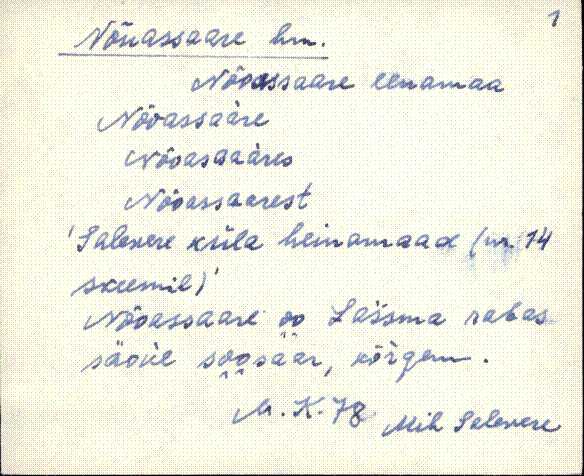 1
Nõuassaare hm.
Nõoassaare eenamaa
Nõoassaare
Nõoassaares
Nõoassaarest
'Salevere küla heinamaad (nr. 14
skeemil)'
Nõoassaare oo Lassma rabas
soosaar, kõrgem.
M. K. 78 Mih Salevere